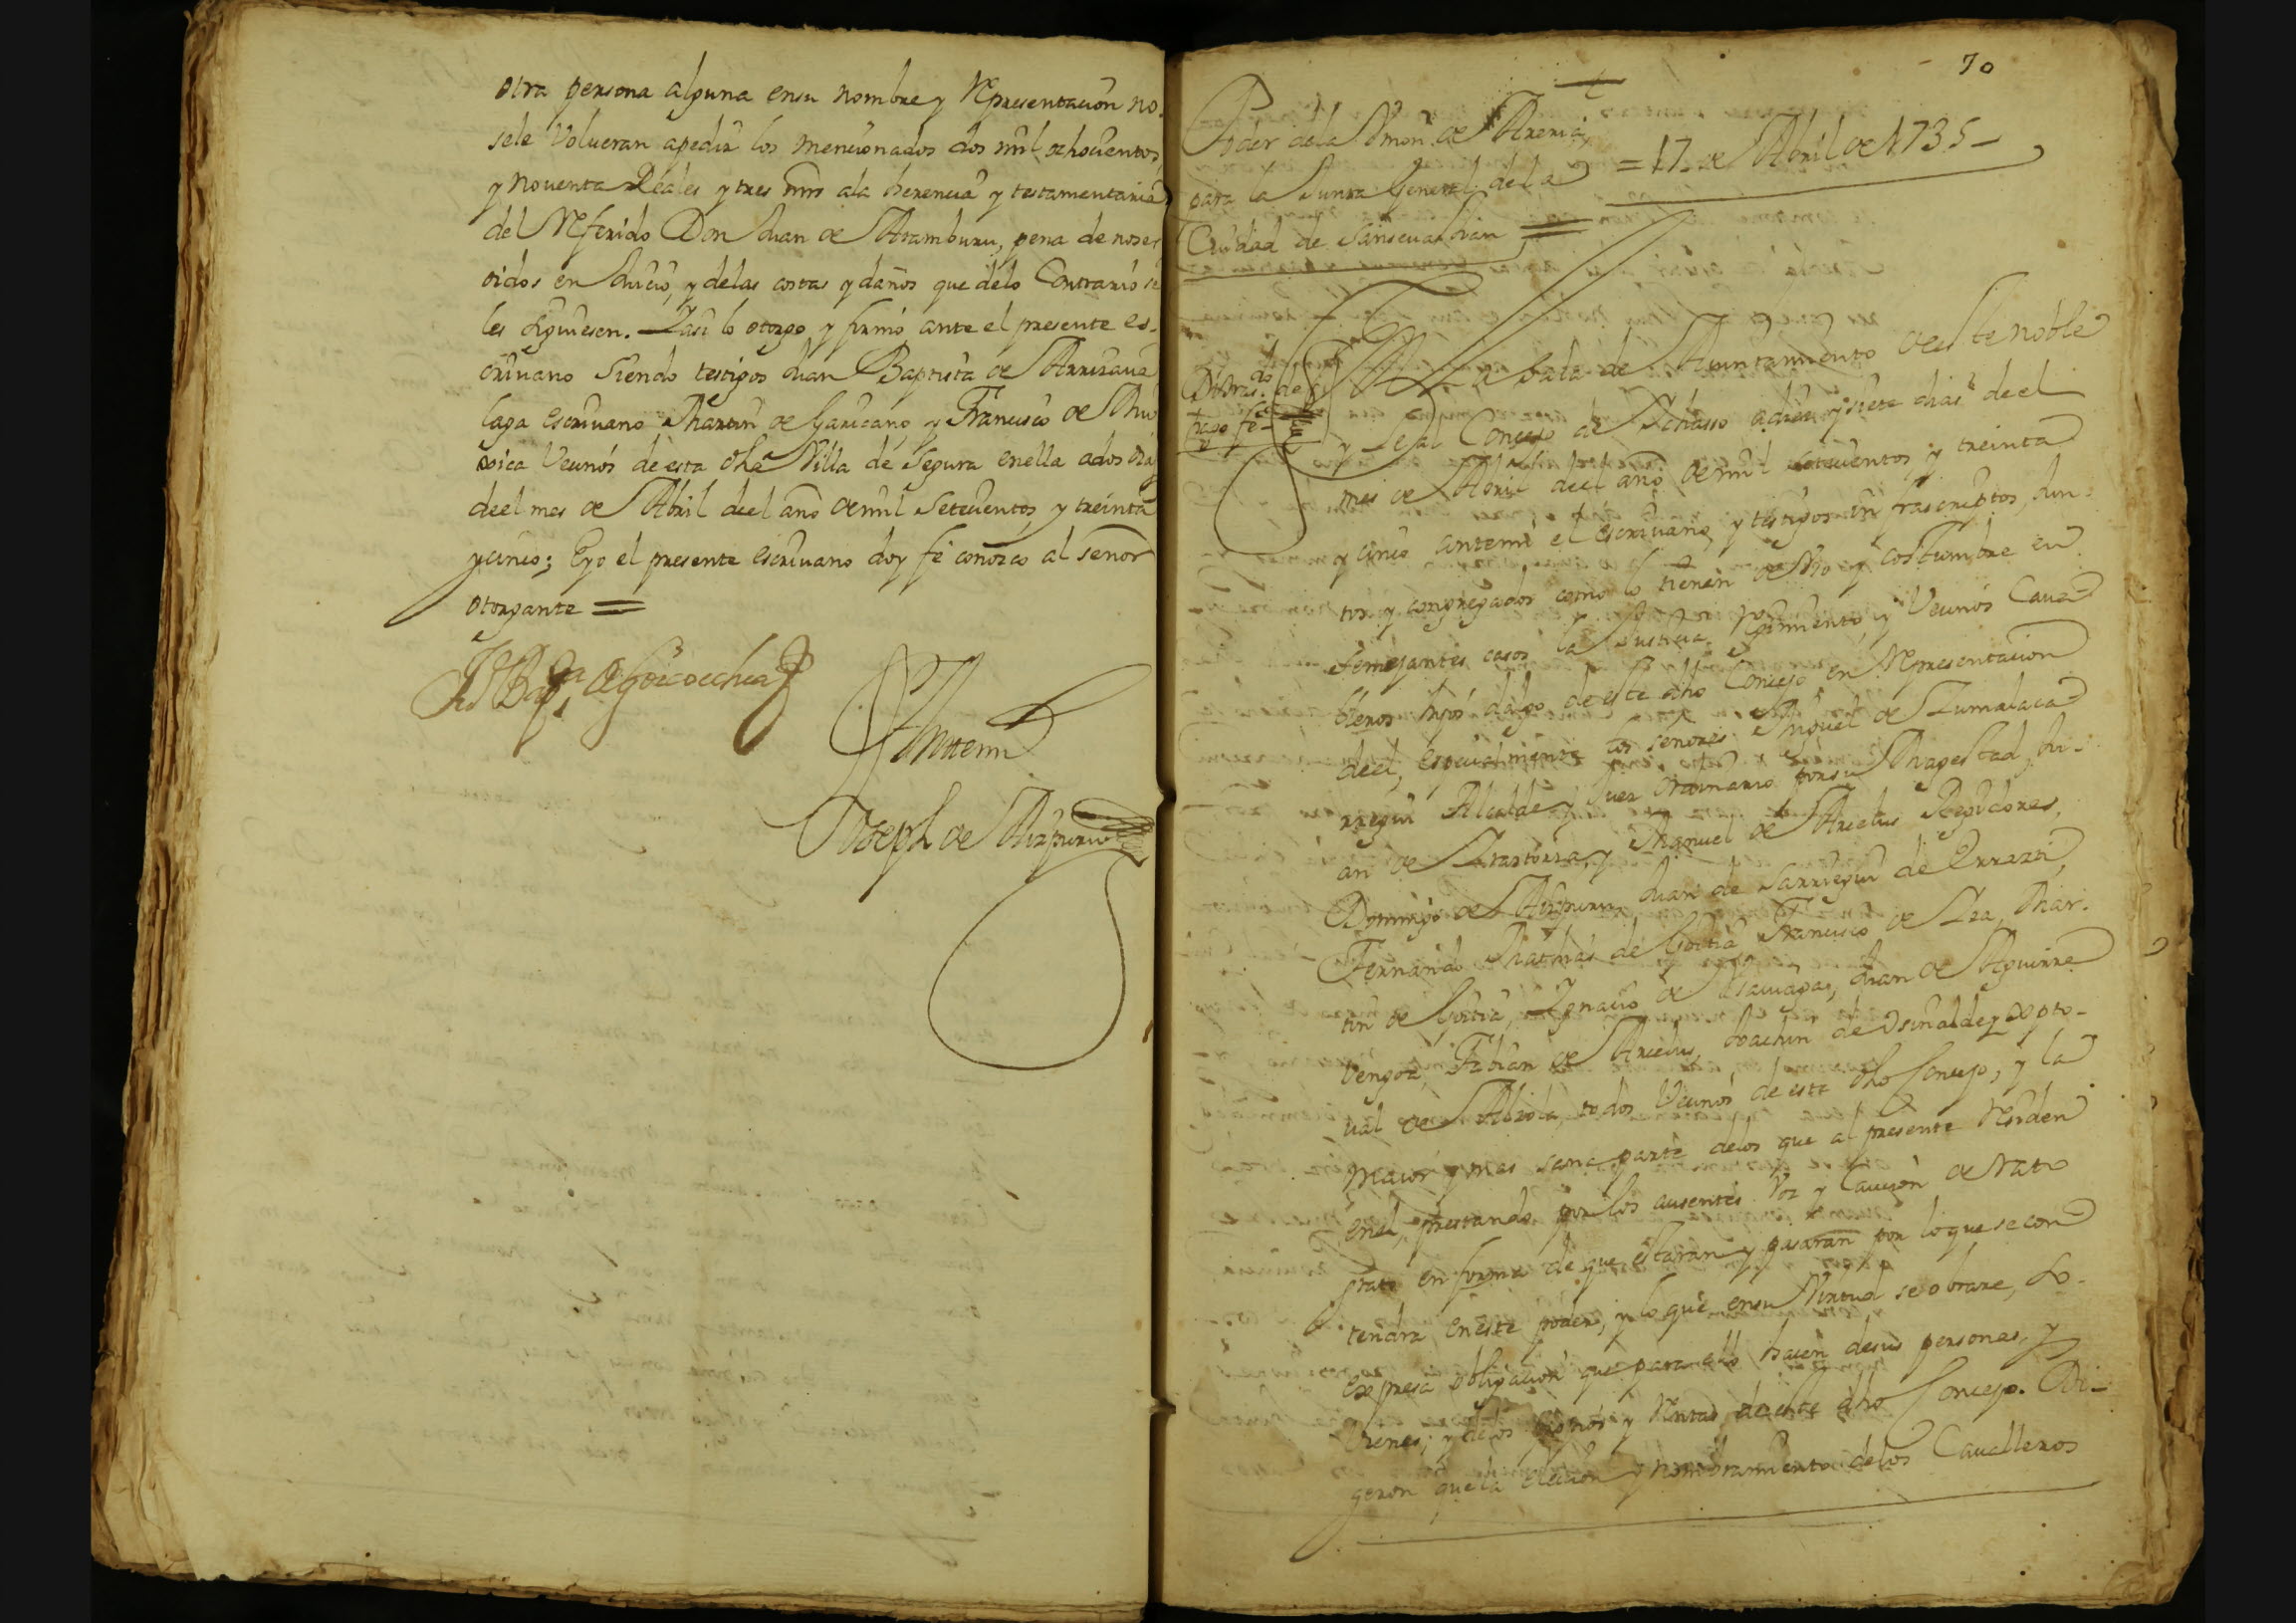 otra persona alguna ensu nombre y Representacion no,
sele Volueran apedir los mencionados dos mil ochocientos
y noventa Reales y tres mrs ala herencia y testamentaria
del Referido Don Juan de Aramburu, pena de noser
oidos en Juicio, y delas costas y daños que delo Contrario se
les siguiesen. Yasi lo otorgo y firmo ante el presente es-
criuano Siendo testigos Juan Baptista de Arrizaua
laga escriuano Martin de Garicano y Francisco de
Vecinos de esta dha Villa de Segura enella ados dias
deel mes de Abril deel año de mil Setecientos y treinta
ycinco; Eyo el presente escriuano doy fe conozco al señor
otorgante =
Jn Bapta de Goicoechea
Antemi
Joseph de Aizpuru
70
Poder dela Vnion de Areria,
para la Junta General dela
Ciudad de Sanseuastian =
= 17 de Abril de 1735 -
En la Sala de Aiuntamiento de este noble
y Leal Concejo de Ichasso adiez y siete dias deel
mes de Abril deel año de mil setecientos y treinta
y cinco antemi el escriuano, y testigos infrascriptos, Jun-
tos y congregados como lo tienen de Vso y costumbre en
semejantes casos la Justicia, Regimiento, y Vecinos Caua-
lleros hijos dalgo de este dho Concejo en Representacion
deel, especialmente los señores Miguel de Zumalaca-
rregui Alcalde y Juez ordinario por su Magestad, Ju-
an de Irastorza, y Manuel de Arcelus Regidores,
Domingo de Aizpuru, Juan de Sarriegui de Errazti,
Fernando Mathias de Goitia Francisco de Iza, Mar-
tin de Goitia, Ignacio de Juan de Aguirre
Vengoa, Fabian de Arcelus, Joachin de Osinalde, y Xpto-
ual de Albiola, todos Vecinos de este dho Concejo, y la
maior y mas sana parte delos que al presente Residen
enel, prestando por los ausentes Voz y Caucion de Rato
grato en forma de que estaran y pasaran por lo que se con
tendra eneste poder, y lo que ensu Virtud se obrare, so-
expresa obligacion que para ello hacen desus personas, y
vienes, y delos propios y Rentas de este dho Concejo. Di-
geron que la eleccion y nombramiento delos Caualleros